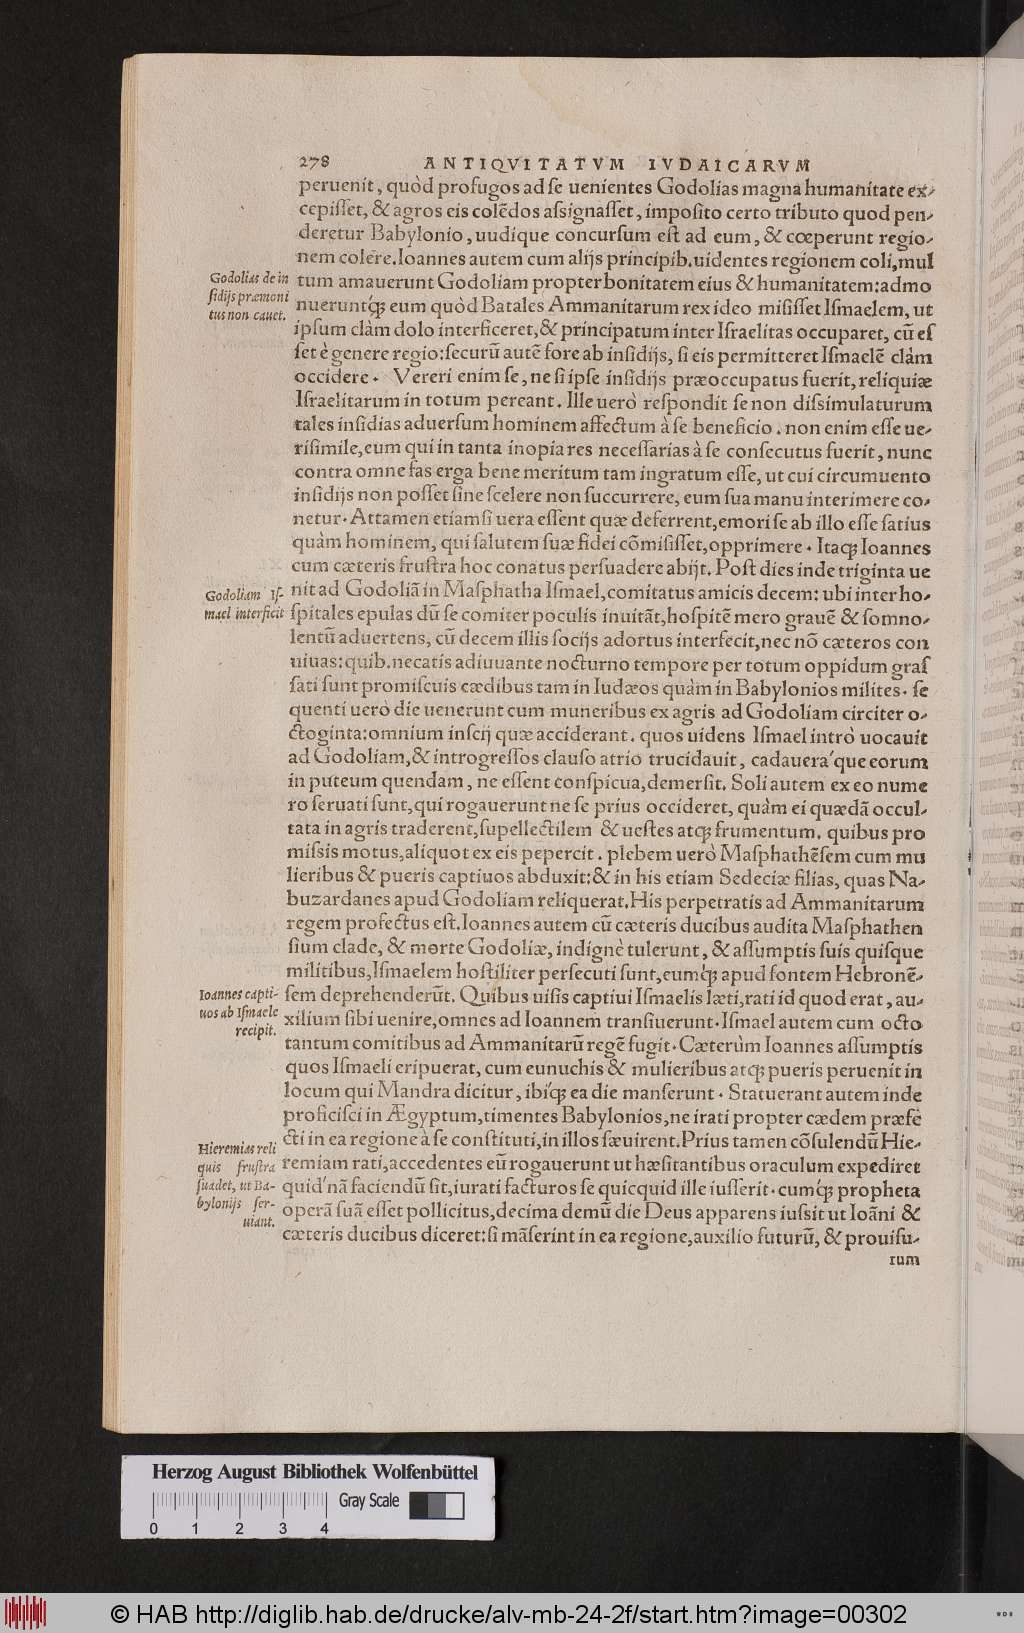 278 ANTIQVITATVM IVDAICARVM
peruenit, quòd profugos ad ſe uenientes Godolias magna humanitate ex-
cepiſſet, & agros eis colẽdos aſsignaſſet, impoſito certo tributo quod pen-
deretur Babylonio, uudique concurſum eſt ad eum, & cœperunt regio-
nem colere. Ioannes autem cum alijs principib. uidentes regionem coli, mul
Godolias de in
ſidijs præmoni
tus non cauet.
tum amauerunt Godoliam propter bonitatem eius & humanitatem: admo
nueruntq́; eum quòd Batales Ammanitarum rex ideo miſiſſet Iſmaelem, ut
ipſum clàm dolo interficeret, & principatum inter Iſraelitas occuparet, cũ eſ
ſet è genere regio: ſecurũ autẽ fore ab inſidijs, ſi eis permitteret Iſmaelẽ clàm
occidere. Vereri enim ſe, ne ſi ipſe inſidijs præoccupatus fuerit, reliquiæ
Iſraelitarum in totum pereant. Ille uerò reſpondit ſe non diſsimulaturum
tales inſidias aduerſum hominem affectum à ſe beneficio. non enim eſſe ue-
riſimile, eum qui in tanta inopia res neceſſarias à ſe conſecutus fuerit, nunc
contra omne fas erga bene meritum tam ingratum eſſe, ut cui circumuento
inſidijs non poſſet ſine ſcelere non ſuccurrere, eum ſua manu interimere co-
netur. Attamen etiamſi uera eſſent quæ deferrent, emori ſe ab illo eſſe ſatius
quàm hominem, qui ſalutem ſuæ fidei cõmiſiſſet, opprimere. Itaq; Ioannes
cum cæteris fruſtra hoc conatus perſuadere abijt. Poſt dies inde triginta ue
Godoliam Iſ-
mael interficit
nit ad Godoliã in Maſphatha Iſmael, comitatus amicis decem: ubi inter ho-
ſpitales epulas dũ ſe comiter poculis inuitãt, hoſpitẽ mero grauẽ & ſomno-
lentũ aduertens, cũ decem illis ſocijs adortus interfecit, nec nõ cæteros con
uiuas: quib. necatis adiuuante nocturno tempore per totum oppidum graſ
ſati ſunt promiſcuis cædibus tam in Iudæos quàm in Babylonios milites. ſe
quenti uerò die uenerunt cum muneribus ex agris ad Godoliam circiter o-
ctoginta: omnium inſcij quæ acciderant. quos uidens Iſmael intrò uocauit
ad Godoliam, & introgreſſos clauſo atrio trucidauit, cadauera'que eorum
in puteum quendam, ne eſſent conſpicua, demerſit. Soli autem ex eo nume
ro ſeruati ſunt, qui rogauerunt ne ſe prius occideret, quàm ei quædã occul-
tata in agris traderent, ſupellectilem & ueſtes atq; frumentum. quibus pro
miſsis motus, aliquot ex eis pepercit. plebem uerò Maſphathẽſem cum mu
lieribus & pueris captiuos abduxit: & in his etiam Sedeciæ filias, quas Na-
buzardanes apud Godoliam reliquerat. His perpetratis ad Ammanitarum
regem profectus eſt. Ioannes autem cũ cæteris ducibus audita Maſphathen
ſium clade, & morte Godoliæ, indignè tulerunt, & aſſumptis ſuis quiſque
militibus, Iſmaelem hoſtiliter perſecuti ſunt, eumq́; apud fontem Hebronẽ-
Ioannes capti-
uos ab Iſmaele
recipit.
ſem deprehenderũt. Quibus uiſis captiui Iſmaelis læti, rati id quod erat, au-
xilium ſibi uenire, omnes ad Ioannem tranſiuerunt. Iſmael autem cum octo
tantum comitibus ad Ammanitarũ regẽ fugit. Cæterùm Ioannes aſſumptis
quos Iſmaeli eripuerat, cum eunuchis & mulieribus atq; pueris peruenit in
locum qui Mandra dicitur, ibiq́; ea die manſerunt. Statuerant autem inde
proficiſci in Ægyptum, timentes Babylonios, ne irati propter cædem præfe
Hieremias reli
quis fruſtra
ſuadet, ut Ba-
bylonijs ſer-
uiant.
cti in ea regione à ſe conſtituti, in illos ſæuirent. Prius tamen cõſulendũ Hie-
remiam rati, accedentes eũ rogauerunt ut hæſitantibus oraculum expediret
quid'nã faciendũ ſit, iurati facturos ſe quicquid ille iuſſerit. cumq́; propheta
operã ſuã eſſet pollicitus, decima demũ die Deus apparens iuſsit ut Ioãni &
cæteris ducibus diceret: ſi mãſerint in ea regione, auxilio futurũ, & prouiſu-
rum
Herzog August Bibliothek Wolfenbüttel
Gray Scale
0 1 2 3 4
© HAB http://diglib.hab.de/drucke/alv-mb-24-2f/start.htm?image=00302